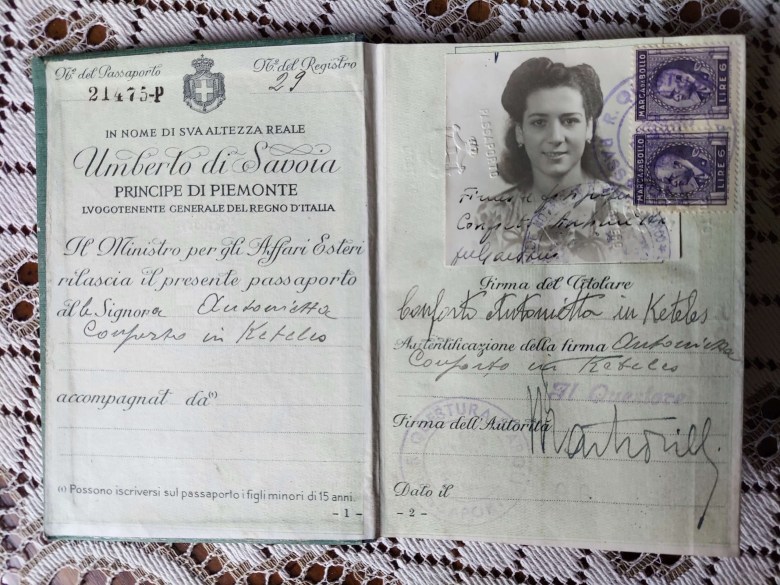 N.º del Passaporto
N.º del Registro
21475-P
29
IN NOME DI SVA ALTEZZA REALE
Umberto di Savoia
PRINCIPE DI PIEMONTE
LVOGOTENENTE GENERALE DEL REGNO D'ITALIA
Il Ministro per gli Affari Esteri
rilascia il presente passaporto
alla Signora Antonietta
Conforto in Keteles
accompagnat da⁽¹⁾
(1) Possono iscriversi sul passaporto i figli minori di 15 anni.
- 1 -
MARCA DA BOLLO
LIRE 6
MARCA DA BOLLO
LIRE 6
Firma del Titolare
Conforto Antonietta in Keteles
Autentificazione della firma Antonietta
Conforto in Keteles
Il Questore
Firma dell'Autorità
R. QUESTURA
Dato il
- 2 -